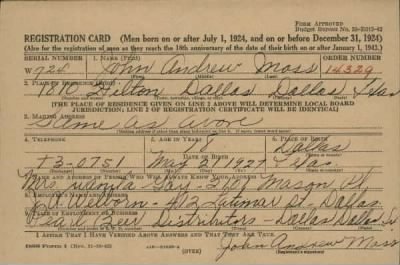 FORM APPROVED
Budget Bureau No.
REGISTRATION CARD (Men born on or after July 1, 1924, and on or before December 31, 1924)
(Also for the registration of men as they reach the 18th anniversary of the date of their birth on or after January 1, 1943.)
SERIAL NUMBER 1. NAME (Print) ORDER NUMBER
W 724 John Andrew Moss 14329
(First) (Middle) (Last)
2. PLACE OF RESIDENCE (Print)
Dallas Dallas Texas
[THE PLACE OF RESIDENCE GIVEN ON LINE 2 ABOVE WILL DETERMINE LOCAL BOARD
JURISDICTION; LINE 2 OF REGISTRATION CERTIFICATE WILL BE IDENTICAL]
3. MAILING ADDRESS
Same as above
4. TELEPHONE 5. AGE IN YEARS 6. PLACE OF BIRTH
Dallas
DATE OF BIRTH
T3-0751 Texas
7. NAME AND ADDRESS OF PERSON WHO WILL ALWAYS KNOW YOUR ADDRESS
Mrs. Juanita Gay - Mason
8. EMPLOYER'S NAME AND ADDRESS
Welborn - 412 Latimar St - Dallas
9. PLACE OF EMPLOYMENT OR BUSINESS
Pearl Beer Distributors - Dallas Dallas
I AFFIRM THAT I HAVE VERIFIED ABOVE ANSWERS AND THAT THEY ARE TRUE.
(OVER)
John Andrew Moss